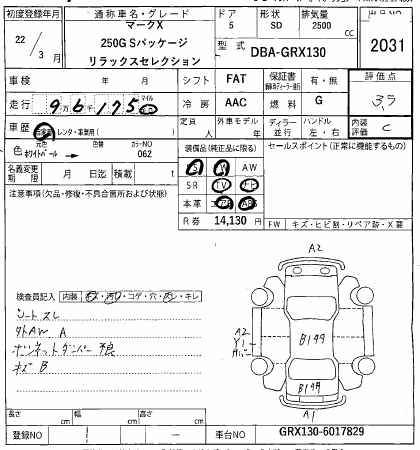 初度登録年月 通称車名・グレード ドア 形状 排気量 出品NO
22 / 3 月 マークX 5 SD 2500 cc
250G Sパッケージ
リラックスセレクション 型式 DBA-GRX130 2031
車検 年 月 シフト FAT 保証書 有・無 評価点
走行 9万6千175 マイル 冷房 AAC 燃料 G 3.5
車歴 自家用 レンタ・事業用( ) 定員 人 外車モデル ディーラー 並行 ハンドル 左・右 内装評価 C
色 元色 ホワイトパール 色替 カラーNO 062 装備品(純正品に限る) セールスポイント(正常に機能するもの)
PS AW
名義変更期限 月 日迄 積載 t SR TV ナビ
注意事項(欠品・修復・不具合箇所および状態) 本革 エアB ABS
R券 14,130 円 FW キズ・ヒビ割・リペア跡・X要
A2
検査員記入 内装 キズ・汚れ・コゲ・穴・キレ
シートスレ
外AW A
ボンネットダンパー不良
キズ B
A2
Y1
B144
A1
長さ cm 幅 cm 高さ cm
登録NO 車台NO GRX130-6017829